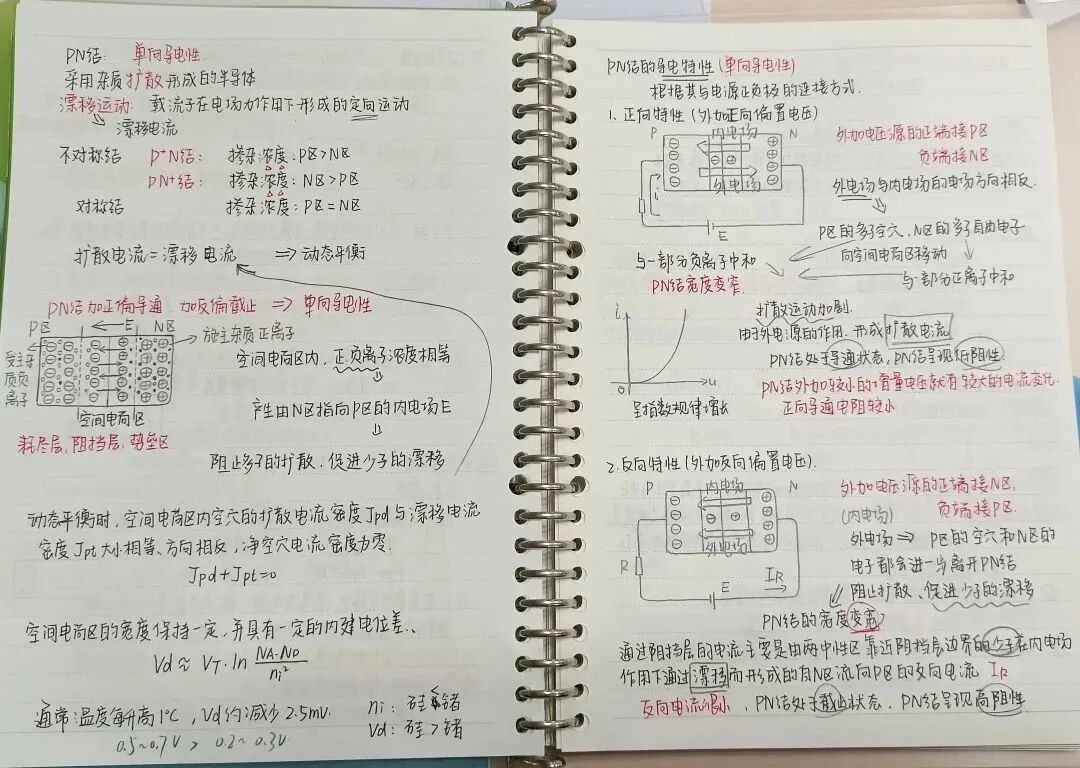 PN结: 单向导电性.
采用杂质扩散形成的半导体
漂移运动: 载流子在电场力作用下形成的定向运动
漂移电流
不对称结 P⁺N结: 掺杂浓度: P区>N区
PN⁺结: 掺杂浓度: N区>P区
对称结 掺杂浓度: P区=N区
扩散电流=漂移电流 ⇒动态平衡
PN结加正偏导通, 加反偏截止 ⇒ 单向导电性
P区 ←E N区
施主杂质正离子
受主杂质负离子
空间电荷区
耗尽层, 阻挡层, 势垒区
空间电荷区内, 正负离子浓度相等
产生由N区指向P区的内电场E
阻止多子的扩散, 促进少子的漂移
动态平衡时, 空间电荷区内空穴的扩散电流密度Jpd与漂移电流
密度Jpt大小相等、方向相反, 净空穴电流密度为零.
Jpd+Jpt=0
空间电荷区的宽度保持一定, 并具有一定的内建电位差.
Vd ≈ VT·ln NA·ND/ni²
通常:温度每升高1℃, Vd约减少2.5mV.
0.5~0.7V > 0.2~0.3V
ni: 硅<锗
Vd: 硅>锗
PN结的导电特性(单向导电性)
根据其与电源正负极的连接方式.
1. 正向特性(外加正向偏置电压)
P 内电场 N
外电场
i
E
外加电压源的正端接P区
负端接N区
外电场与内电场的电场方向相反.
P区的多子空穴、N区的多子自由电子
向空间电荷区移动
与一部分负离子中和
与一部分正离子中和
PN结宽度变窄.
i
0
u
呈指数规律增长
扩散运动加剧.
由于外电源的作用, 形成扩散电流
PN结处于导通状态, PN结呈现低阻性
PN结外加较小的增量电压就有较大的电流变化.
正向导通电阻较小
2.反向特性(外加反向偏置电压).
P 内电场 N
外电场
R
E
IR
外加电压源的正端接N区,
负端接P区.
(内电场)
外电场 ⇒ P区的空穴和N区的
电子都会进一步离开PN结
阻止扩散、促进少子的漂移
PN结的宽度变宽
通过阻挡层的电流主要是由两中性区靠近阻挡层边界的少子在内电场
作用下通过漂移而形成的自N区流向P区的反向电流 IR
反向电流很小, PN结处于截止状态, PN结呈现高阻性